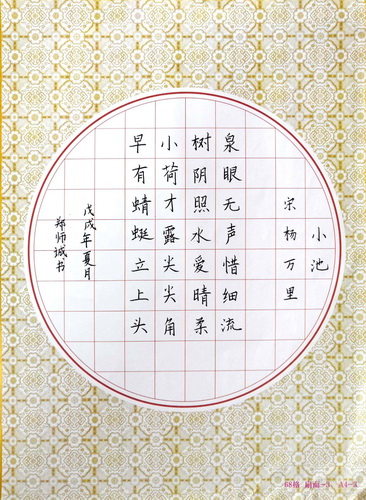 小池
宋杨万里
泉眼无声惜细流
树阴照水爱晴柔
小荷才露尖尖角
早有蜻蜓立上头
戊戌年夏月
郑师城书